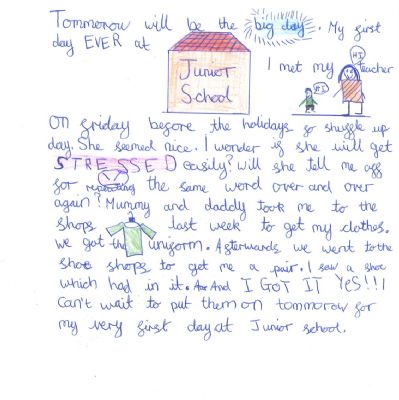 Tommorow will be the big day. My first
day EVER at Junior School I met my teacher
HI
HI
on friday before the holidays so shuggle up
day. She seemed nice. I wonder if she will get
STRESSED easily? Will she tell me off
for repeating the same word over and over
again? Mummy and daddy took me to the
shops last week to get my clothes.
We got the uniform. Afterwards we went to the
shoe shops to get me a pair. I saw a shoe
which had in it. And I GOT IT YES!!! I
can't wait to put them on tommorow for
my very first day at Junior school.